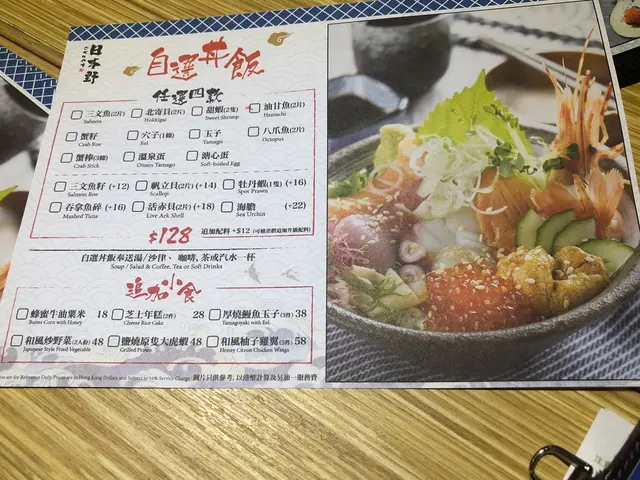 日本野
自選丼飯
任選四款
三文魚(2片) 北寄貝(2片) 甜蝦(2隻) 油甘魚(2片)
Salmon Hokkigai Sweet Shrimp Hamachi
蟹籽 穴子(1條) 玉子 八爪魚(2片)
Crab Roe Eel Tamago Octopus
蟹棒(3條) 溫泉蛋 溏心蛋
Crab Stick Onsen Tamago Soft-boiled Egg
三文魚籽 (+12) 帆立貝(2片) (+14) 牡丹蝦(1隻) (+16)
Salmon Roe Scallop Spot Prawn
吞拿魚碎 (+16) 活赤貝(2片) (+18) 海膽 (+22)
Mashed Tuna Live Ark Shell Sea Urchin
$128 追加配料 +$12
自選丼飯奉送湯/沙律、咖啡, 茶或汽水一杯
Soup / Salad & Coffee, Tea or Soft Drinks
追加小食
蜂蜜牛油粟米 18 芝士年糕(2件) 28 厚燒鰻魚玉子(3件) 38
Butter Corn with Honey Cheese Rice Cake Tamagoyaki with Eel
和風炒野菜(2人份) 48 鹽燒原隻大虎蝦 48 和風柚子雞翼(5件) 58
Japanese Style Fried Vegetable Grilled Prawn Honey Citron Chicken Wings
are for Reference Only. Prices are in Hong Kong Dollars and Subject to 10% Service Charge. 圖片只供參考, 以港幣計算及另加一服務費